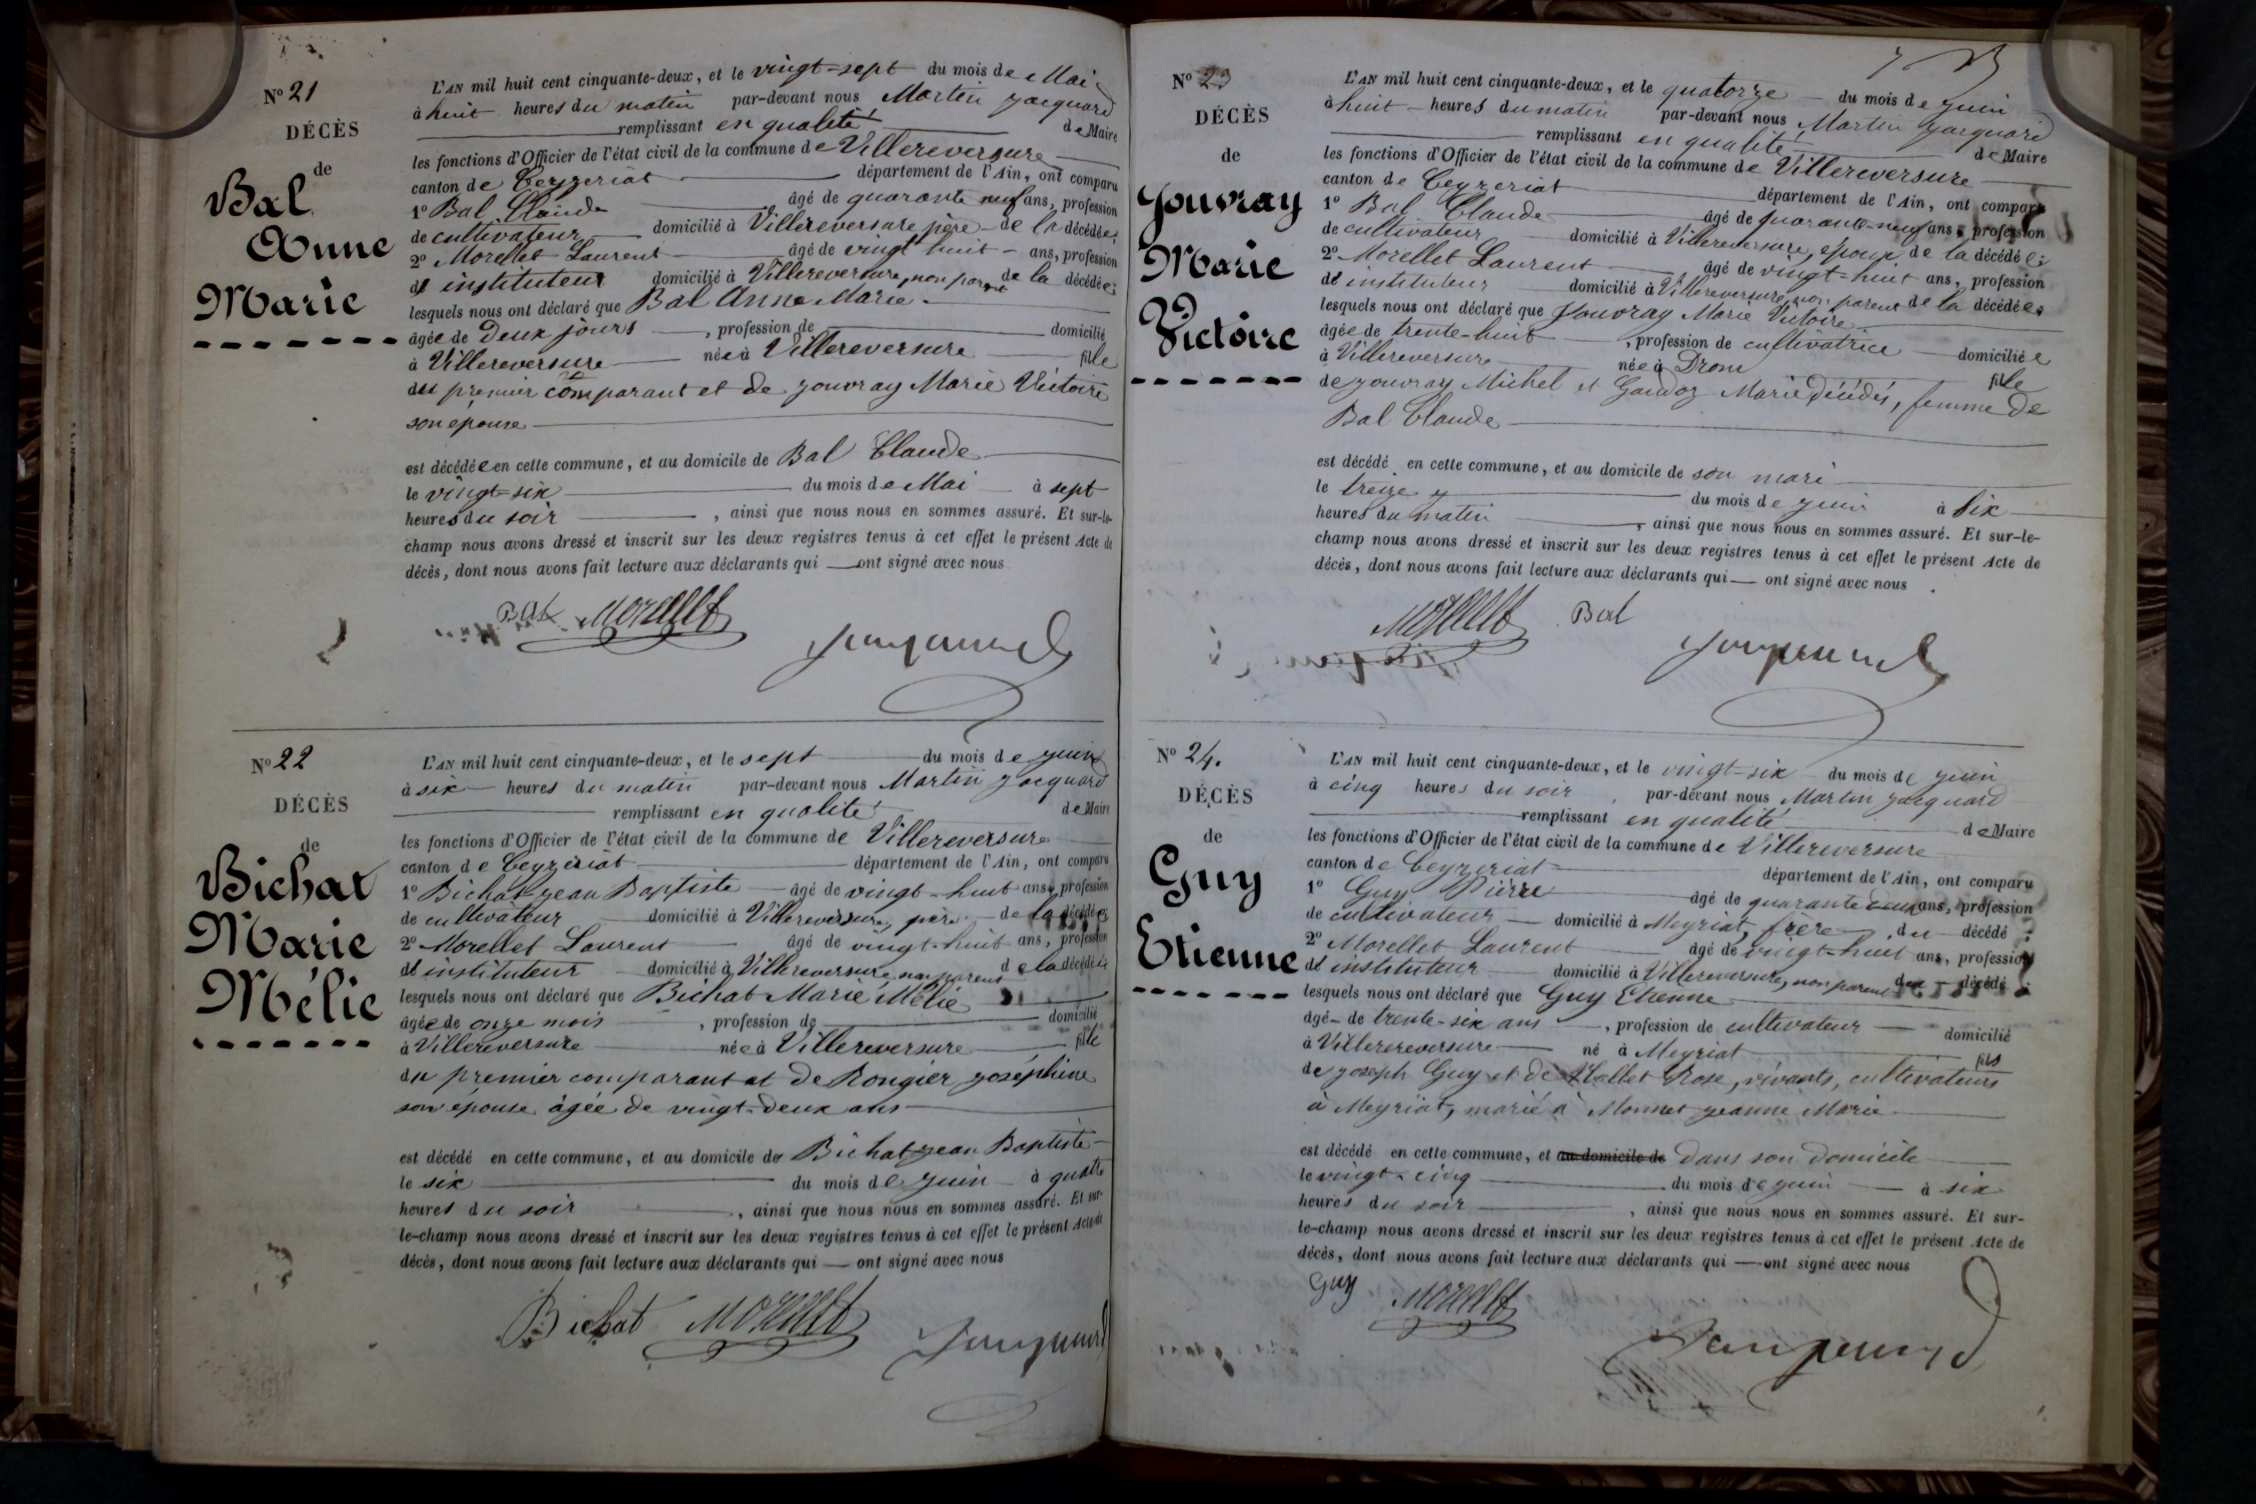 N° 21
DÉCÈS
de
Bal
Anne
Marie
L'AN mil huit cent cinquante-deux, et le vingt-sept du mois de Mai
à huit heures du matin par-devant nous Martin Jacquard
remplissant en qualité de Maire
les fonctions d'Officier de l'état civil de la commune de Villereversure
canton de Ceyzeriat département de l'Ain, ont comparu
1° Bal Claude âgé de quarante neuf ans, profession
de cultivateur domicilié à Villereversure père de la décédée;
2° Morellet Laurent âgé de vingt huit ans, profession
d'instituteur domicilié à Villereversure, non parent de la décédée;
lesquels nous ont déclaré que Bal Anne Marie
âgée de Deux jours, profession de domicilié
à Villereversure née à Villereversure fille
du premier comparant et de Jouvray Marie Victoire
son épouse
est décédée en cette commune, et au domicile de Bal Claude
le vingt-six du mois de Mai à sept
heures du soir, ainsi que nous nous en sommes assuré. Et sur-le-
champ nous avons dressé et inscrit sur les deux registres tenus à cet effet le présent Acte de
décès, dont nous avons fait lecture aux déclarants qui — ont signé avec nous
Bal Morellet
Jacquard
N° 22
DÉCÈS
de
Bichat
Marie
Mélie
L'AN mil huit cent cinquante-deux, et le sept du mois de Juin
à six heures du matin par-devant nous Martin Jacquard
remplissant en qualité de Maire
les fonctions d'Officier de l'état civil de la commune de Villereversure
canton de Ceyzériat département de l'Ain, ont comparu
1° Bichat Jean Baptiste âgé de vingt-huit ans, profession
de cultivateur domicilié à Villereversure, père de la décédée;
2° Morellet Laurent âgé de vingt-huit ans, profession
d'instituteur domicilié à Villereversure, non parent de la décédée
lesquels nous ont déclaré que Bichat Marie Mélie
âgée de onze mois, profession de domicilié
à Villereversure née à Villereversure fille
du premier comparant et de Rongier Joséphine
son épouse âgée de vingt-deux ans
est décédé en cette commune, et au domicile de Bichat Jean Baptiste
le six du mois de Juin à quatre
heures du soir, ainsi que nous nous en sommes assuré. Et sur-
le-champ nous avons dressé et inscrit sur les deux registres tenus à cet effet le présent Acte de
décès, dont nous avons fait lecture aux déclarants qui — ont signé avec nous
Bichat Morellet
Jacquard
7
N° 23
DÉCÈS
de
Jouvray
Marie
Victoire
L'AN mil huit cent cinquante-deux, et le quatorze du mois de Juin
à huit heures du matin par-devant nous Martin Jacquard
remplissant en qualité de Maire
les fonctions d'Officier de l'état civil de la commune de Villereversure
canton de Ceyzeriat département de l'Ain, ont comparu
1° Bal Claude âgé de quarante-neuf ans, profession
de cultivateur domicilié à Villereversure, époux de la décédée;
2° Morellet Laurent âgé de vingt-huit ans, profession
d'instituteur domicilié à Villereversure, non parent de la décédée;
lesquels nous ont déclaré que Jouvray Marie Victoire
âgée de trente-huit, profession de cultivatrice domiciliée
à Villereversure née à Drom fille
de Jouvray Michel et Gandoz Marie décédés, femme De
Bal Claude
est décédé en cette commune, et au domicile de son mari
le treize du mois de Juin à Six
heures du matin, ainsi que nous nous en sommes assuré. Et sur-le-
champ nous avons dressé et inscrit sur les deux registres tenus à cet effet le présent Acte de
décès, dont nous avons fait lecture aux déclarants qui — ont signé avec nous
Morellet Bal
Jacquard
N° 24.
DÉCÈS
de
Guy
Etienne
L'AN mil huit cent cinquante-deux, et le vingt-six du mois de Juin
à cinq heures du soir, par-devant nous Martin Jacquard
remplissant en qualité de Maire
les fonctions d'Officier de l'état civil de la commune de Villereversure
canton de Ceyzeriat département de l'Ain, ont comparu
1° Guy Pierre âgé de quarante ans, profession
de cultivateur domicilié à Meyriat, frère du décédé;
2° Morellet Laurent âgé de vingt-huit ans, profession
d'instituteur domicilié à Villereversure, non parent du décédé;
lesquels nous ont déclaré que Guy Etienne
âgé de trente-six ans, profession de cultivateur domicilié
à Villerereversure né à Meyriat fils
de Joseph Guy et de Mallet Rose, vivants, cultivateurs
à Meyriat, marié à Monnet Jeanne Marie
est décédé en cette commune, et au domicile de Dans son domicile
le vingt-cinq du mois de Juin à six
heures du soir, ainsi que nous nous en sommes assuré. Et sur-
le-champ nous avons dressé et inscrit sur les deux registres tenus à cet effet le présent Acte de
décès, dont nous avons fait lecture aux déclarants qui — ont signé avec nous
Guy Morellet
Jacquard